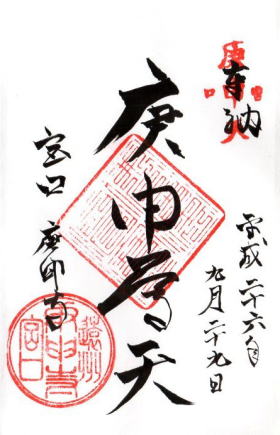 奉納
平成二十六年
九月二十九日
庚申尊天
宮口
庚申寺
遠州
宮口
庚申寺